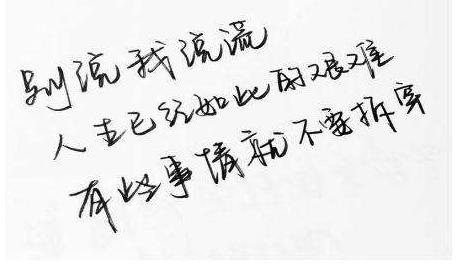 别说我流流
人生已经如此的艰难
有些事情就不要拆穿